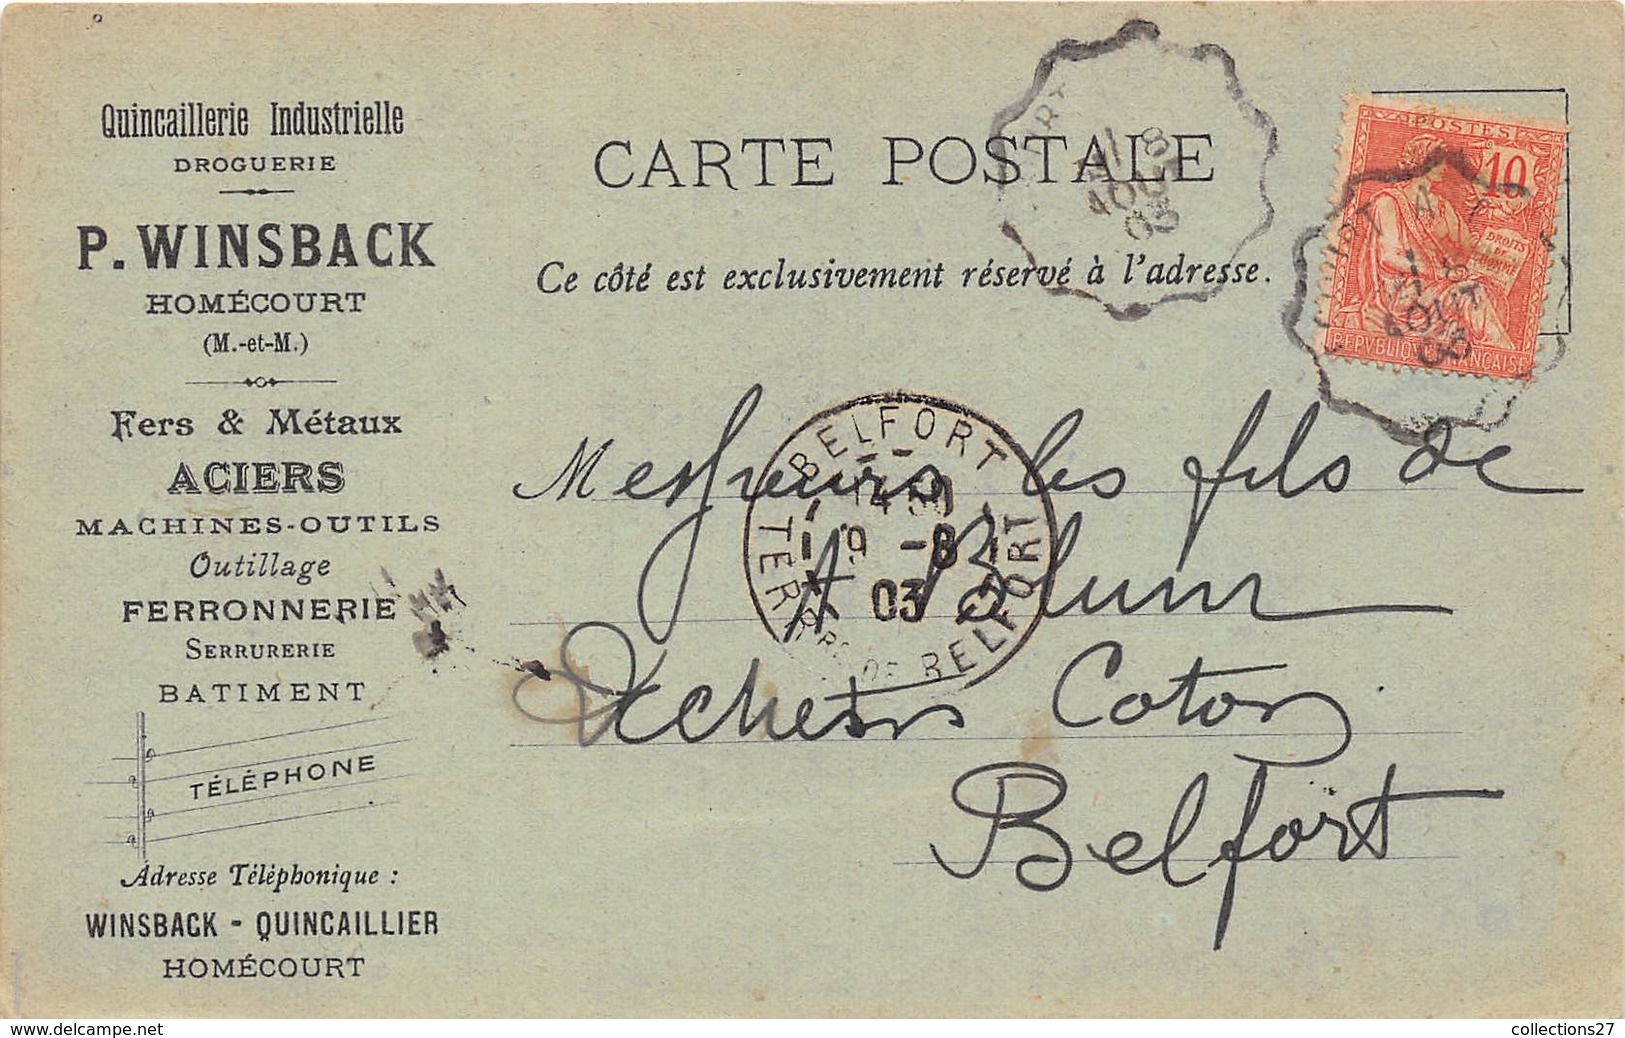 Quincaillerie Industrielle
DROGUERIE
P. WINSBACK
HOMÉCOURT
(M.-et-M.)
Fers & Métaux
ACIERS
MACHINES-OUTILS
Outillage
FERRONNERIE
SERRURERIE
BATIMENT
TÉLÉPHONE
Adresse Téléphonique :
WINSBACK - QUINCAILLIER
HOMÉCOURT
CARTE POSTALE
Ce côté est exclusivement réservé à l'adresse.
8
AOUT
03
POSTES
10
DROITS
DE
L'HOMME
REPVBLIQVE FRANÇAISE
8
AOUT
03
BELFORT
14
9 -8
03
TERRRE DE BELFORT
Messieurs les fils de
A Blum
Belfort
www.delcampe.net
collections27